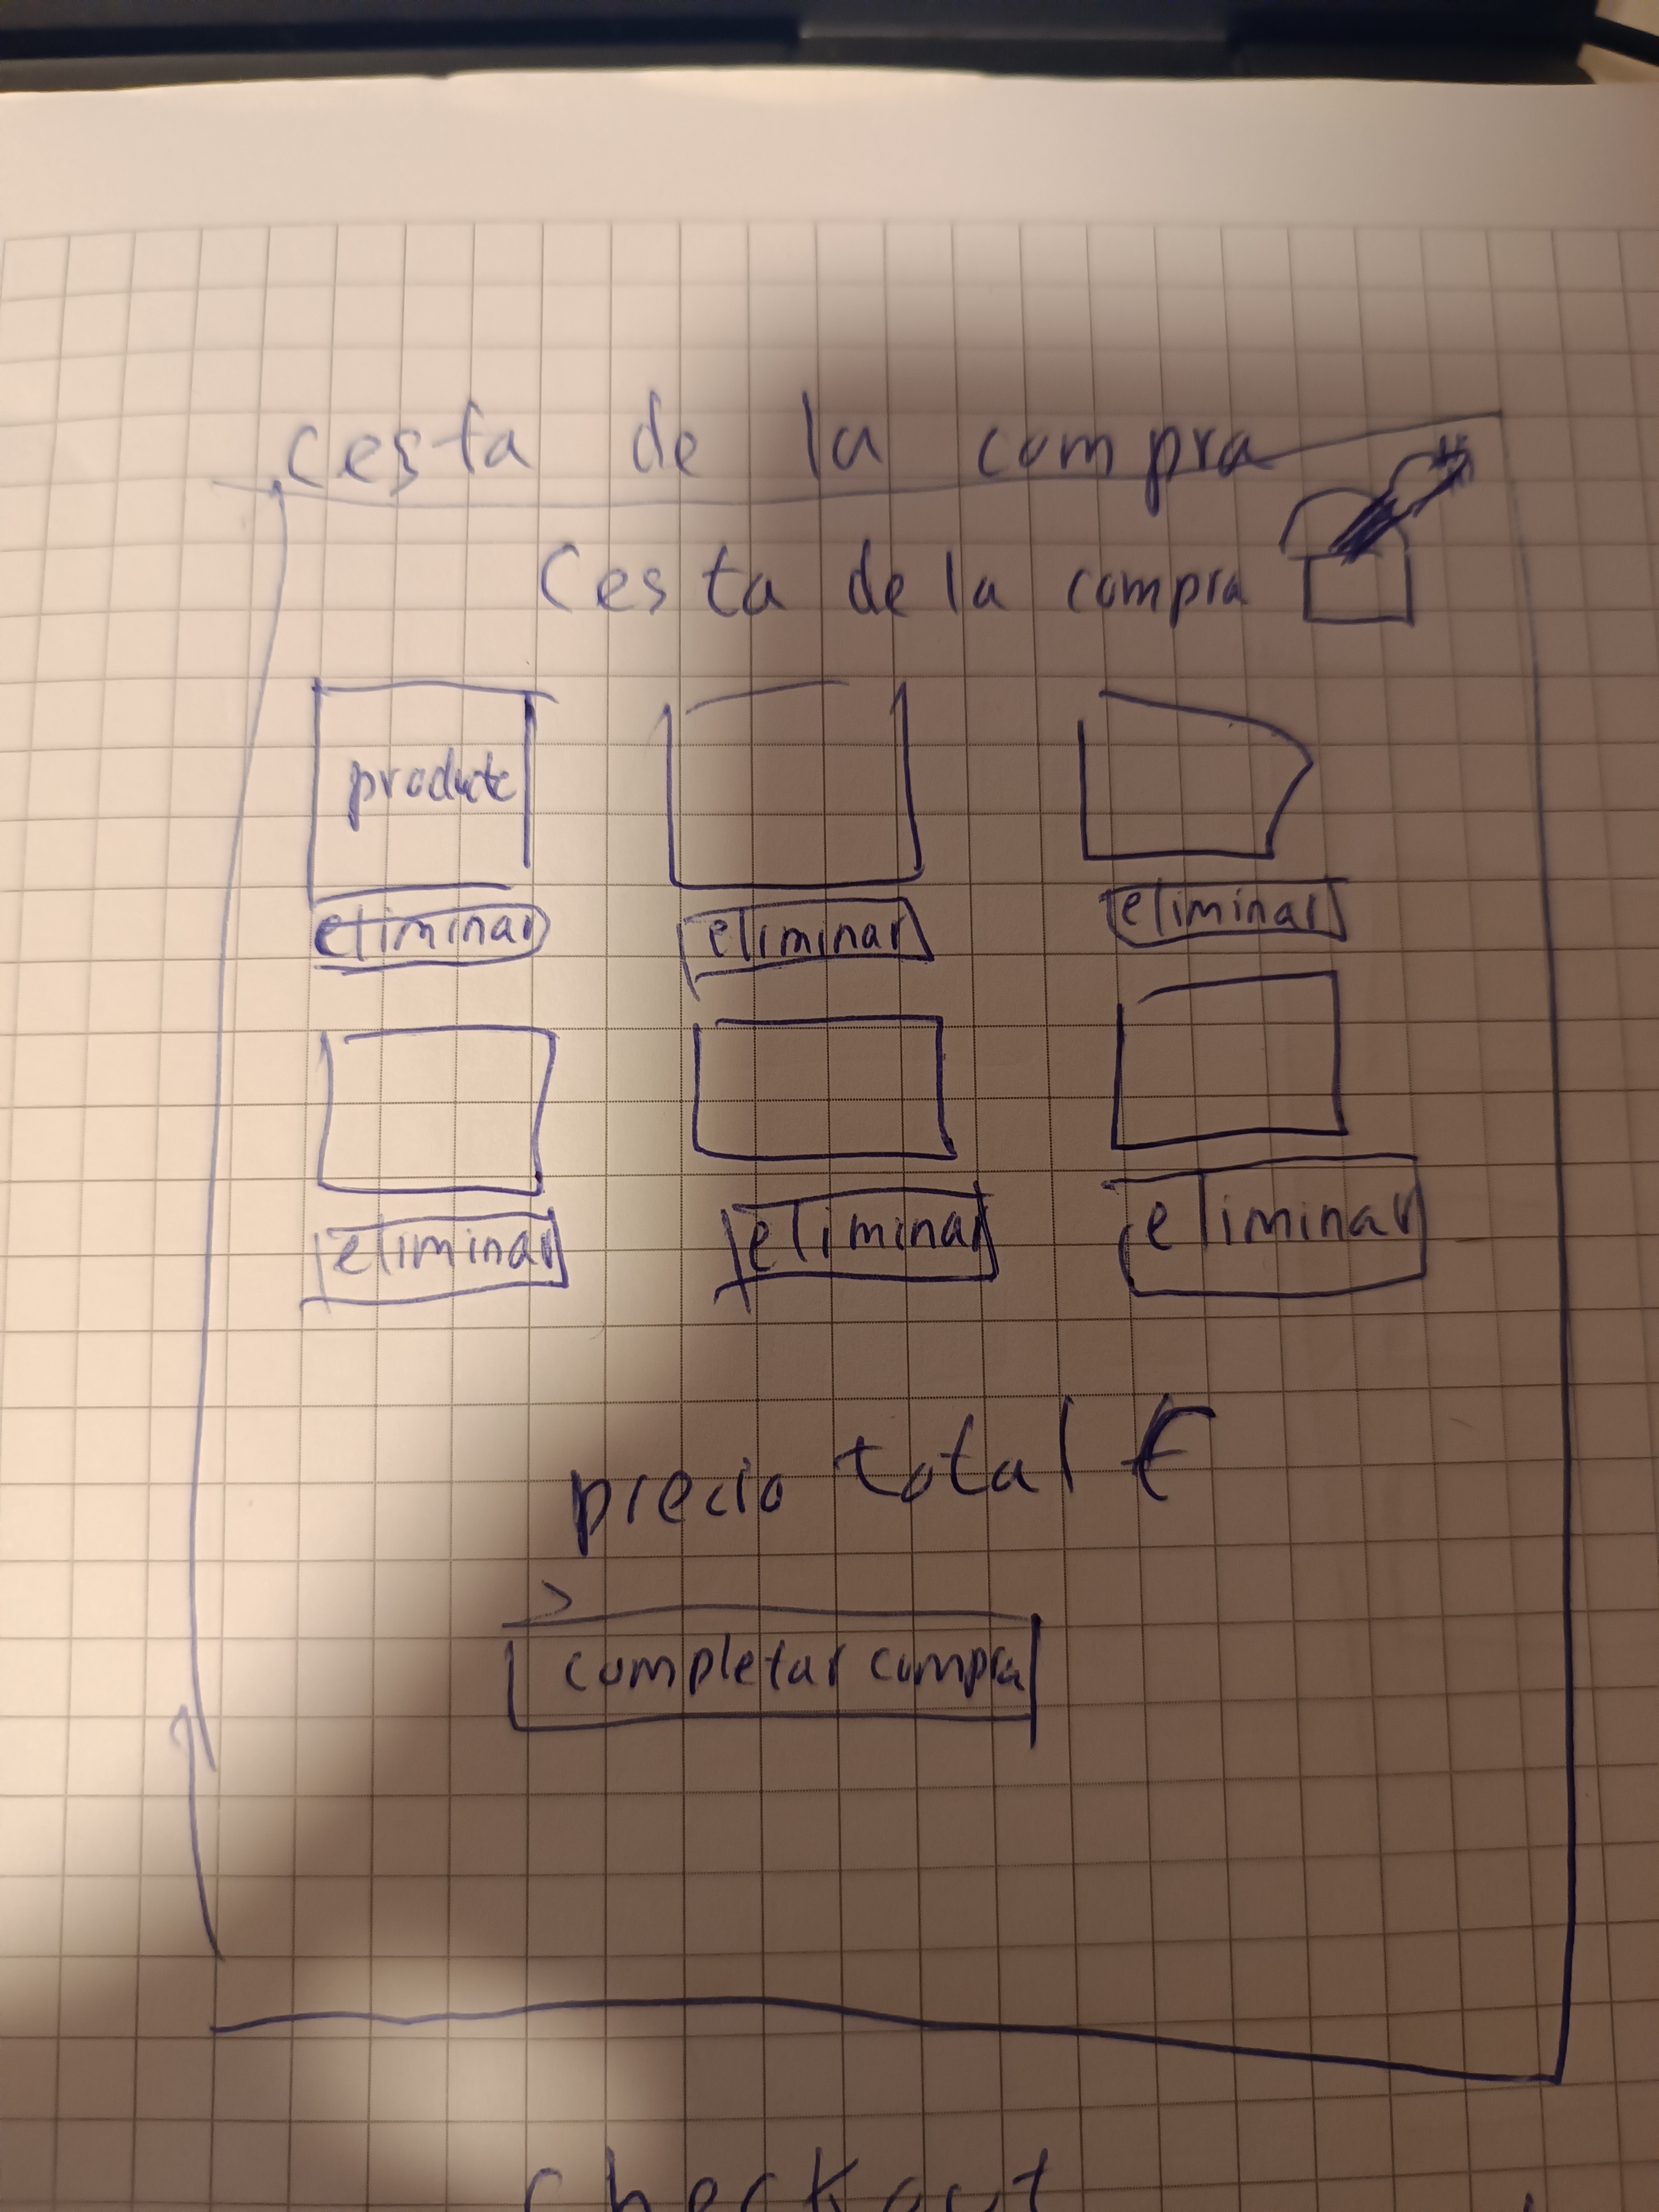 cesta de la compra
Cesta de la compra
producto
eliminar eliminar eliminar
eliminar eliminar eliminar
precio total €
completar compra
checkout